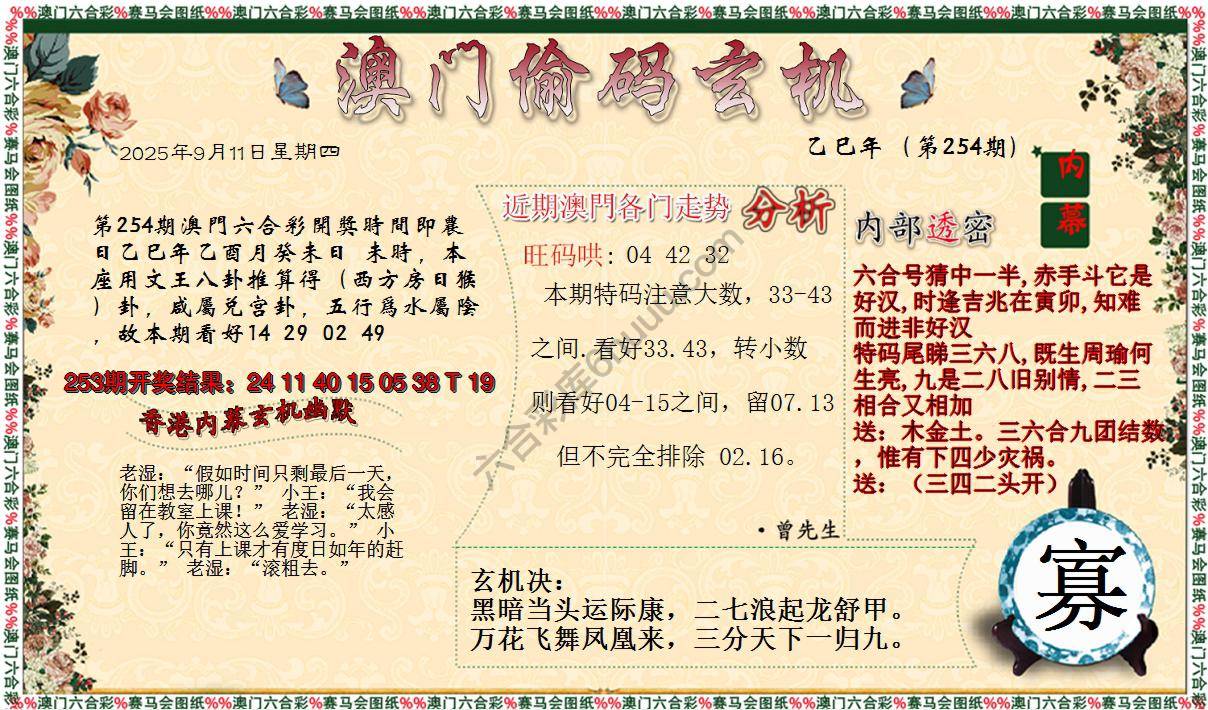 %%澳门六合彩%赛马会图纸%%澳门六合彩%赛马会图纸%%澳门六合彩%赛马会图纸%%澳门六合彩%赛马会图纸
澳门偷码玄机
2025年9月11日星期四
乙巳年（第254期）
内幕
第254期澳門六合彩開獎時間即農
日乙巳年乙酉月癸未日 未時，本
座用文王八卦推算得（西方房日猴
）卦，咸屬兌宫卦，五行爲水屬陰
，故本期看好14 29 02 49
253期开奖结果：24 11 40 15 05 38 T 19
香港内幕玄机幽默
老湿：“假如时间只剩最后一天，
你们想去哪儿？” 小王：“我会
留在教室上课！” 老湿：“太感
人了，你竟然这么爱学习。” 小
王：“只有上课才有度日如年的赶
脚。” 老湿：“滚粗去。”
近期澳門各门走势 分析
旺码哄: 04 42 32
本期特码注意大数，33-43
之间.看好33.43，转小数
则看好04-15之间，留07.13
但不完全排除 02.16。
·曾先生
内部透密
六合号猜中一半,赤手斗它是
好汉,时逢吉兆在寅卯,知难
而进非好汉
特码尾睇三六八,既生周瑜何
生亮,九是二八旧别情,二三
相合又相加
送：木金土。三六合九团结数
，惟有下四少灾祸。
送：（三四二头开）
玄机决：
黑暗当头运际康，二七浪起龙舒甲。
万花飞舞凤凰来，三分天下一归九。
寡
%%澳门六合彩%赛马会图纸%%澳门六合彩%赛马会图纸%%澳门六合彩%赛马会图纸%%澳门六合彩%赛马会图纸